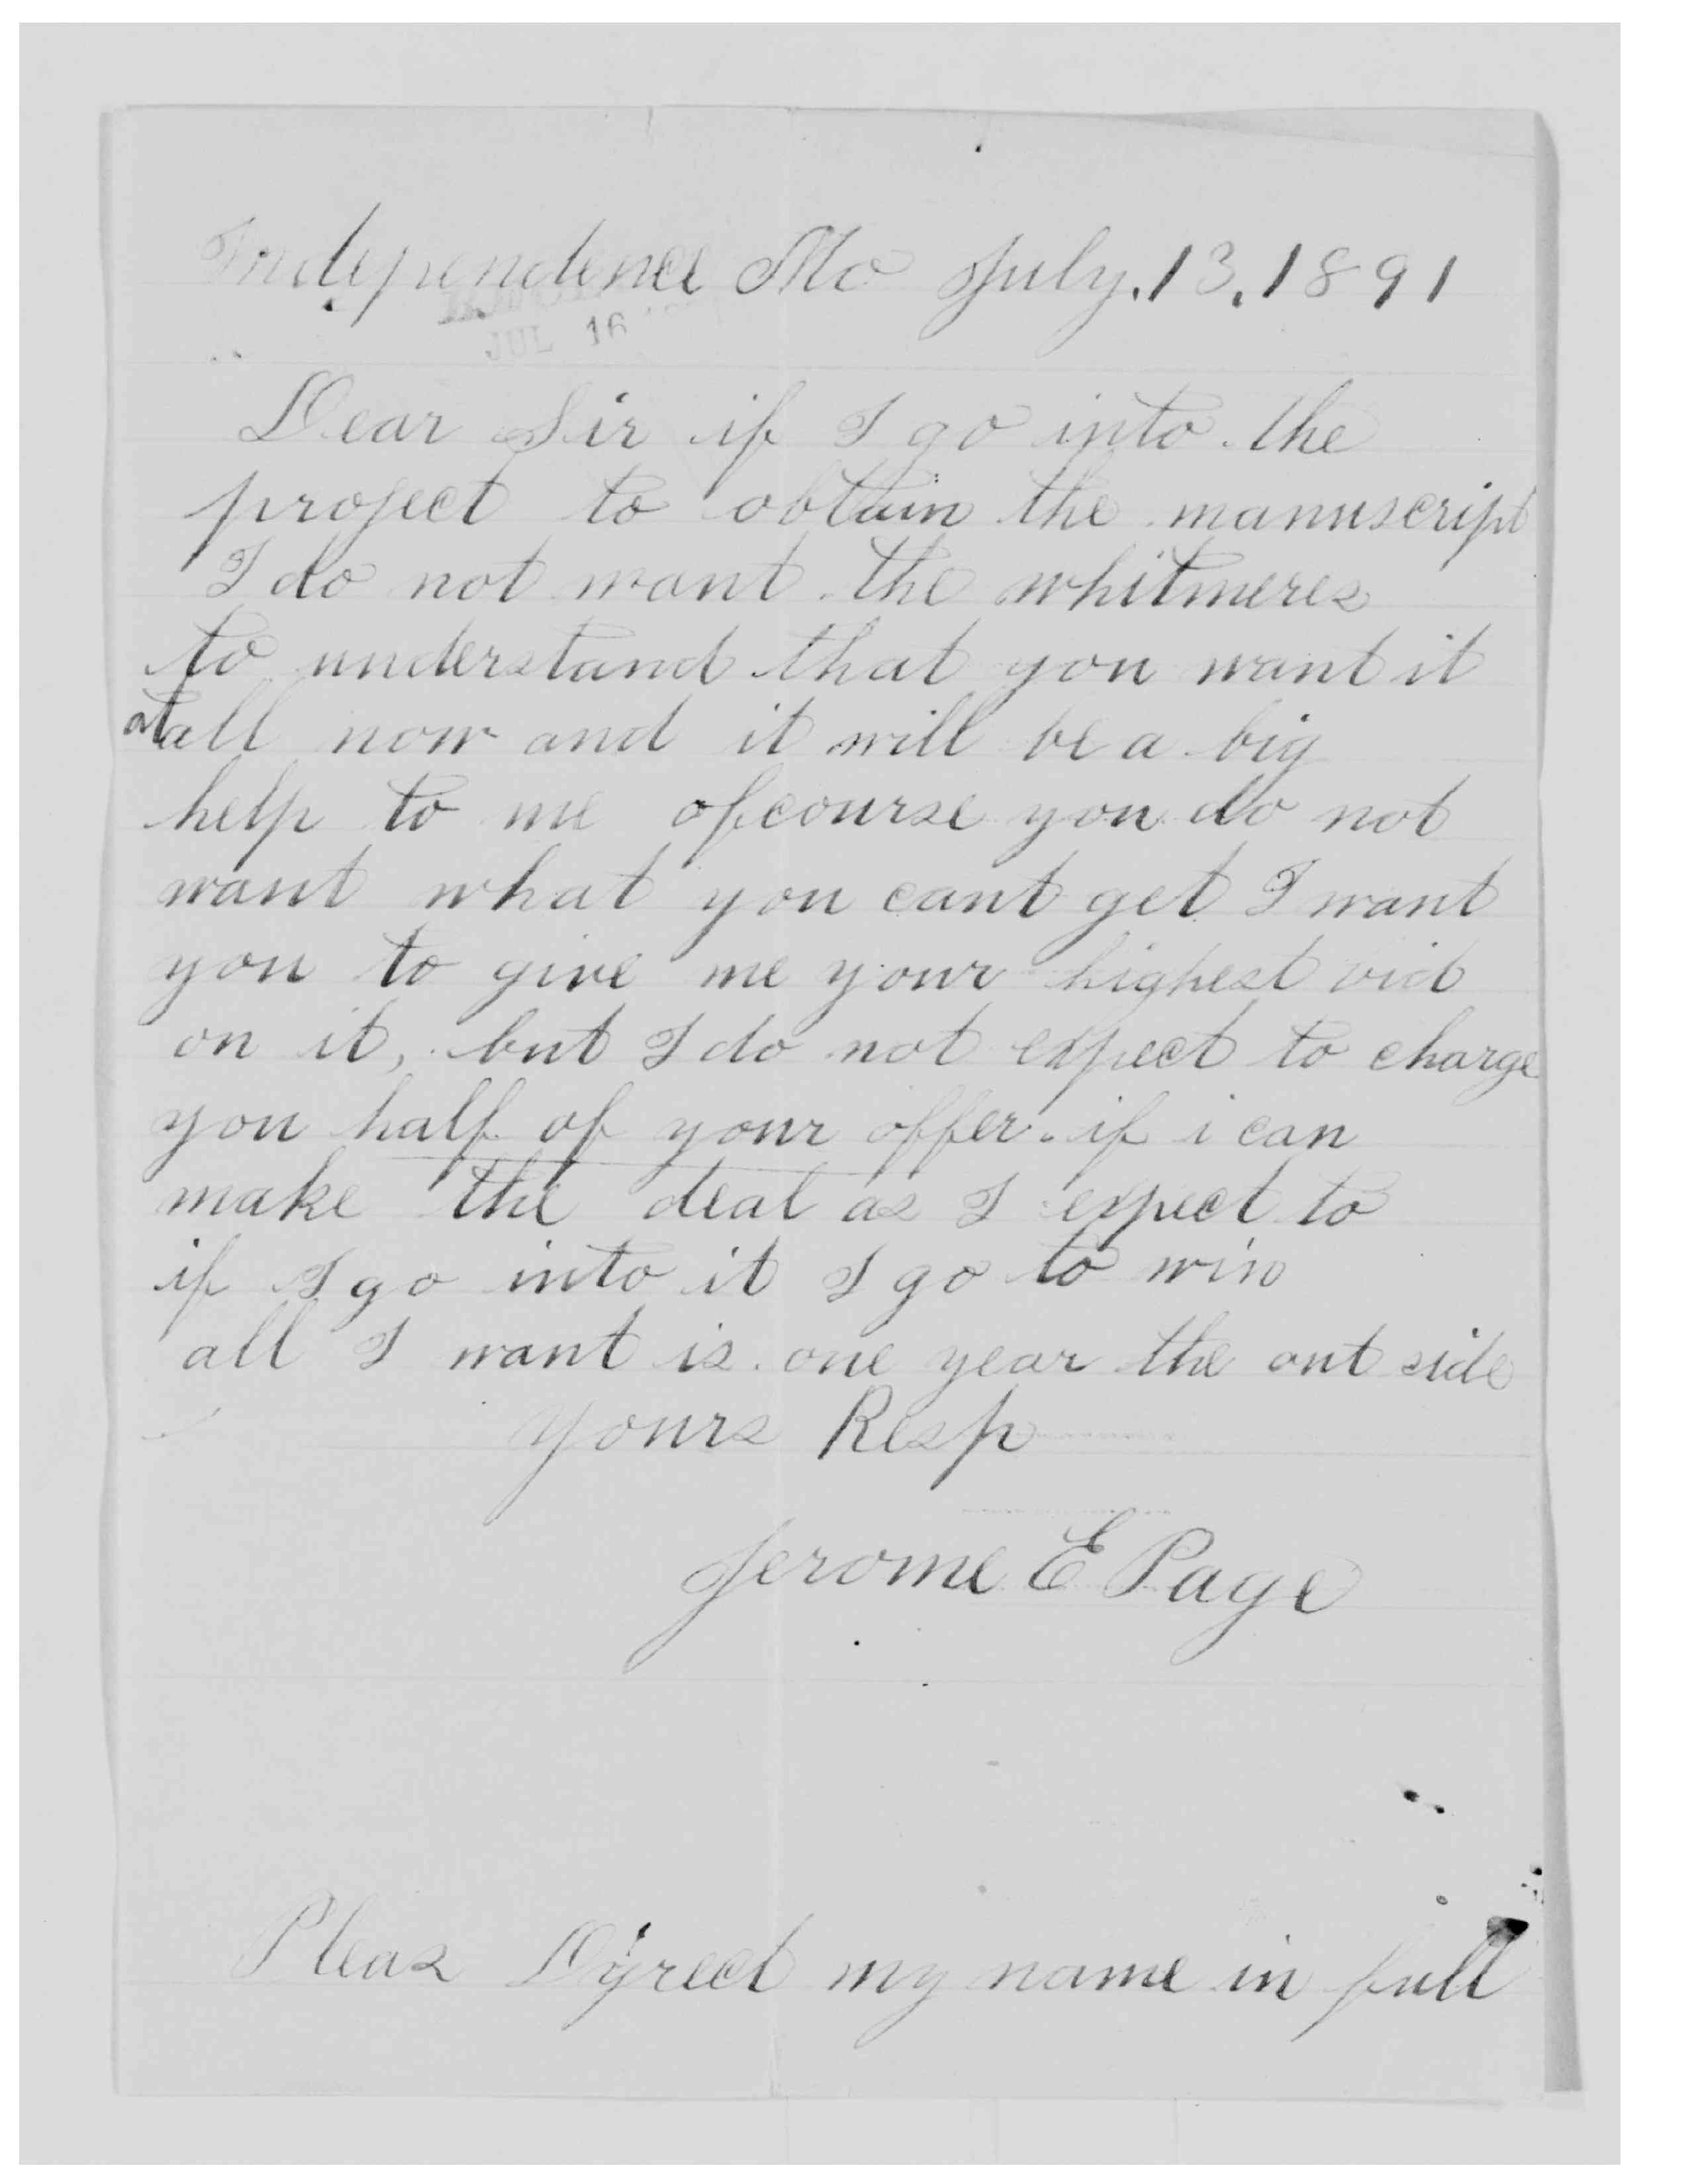 Independence Mo July. 13. 1891
JUL 16
Dear Sir if I go into the
project to obtain the manuscript
I do not want the whitmeres
to understand that you want it
at all now and it will be a big
help to me of course you do not
want what you cant get I want
you to give me your highest vid
on it, but I do not expect to charge
you half of your offer. if i can
make the deal as I expect to
if I go into it I go to win
all I want is one year the out side
yours Resp
Jerome E Page
Pleas Dyrect my name in full